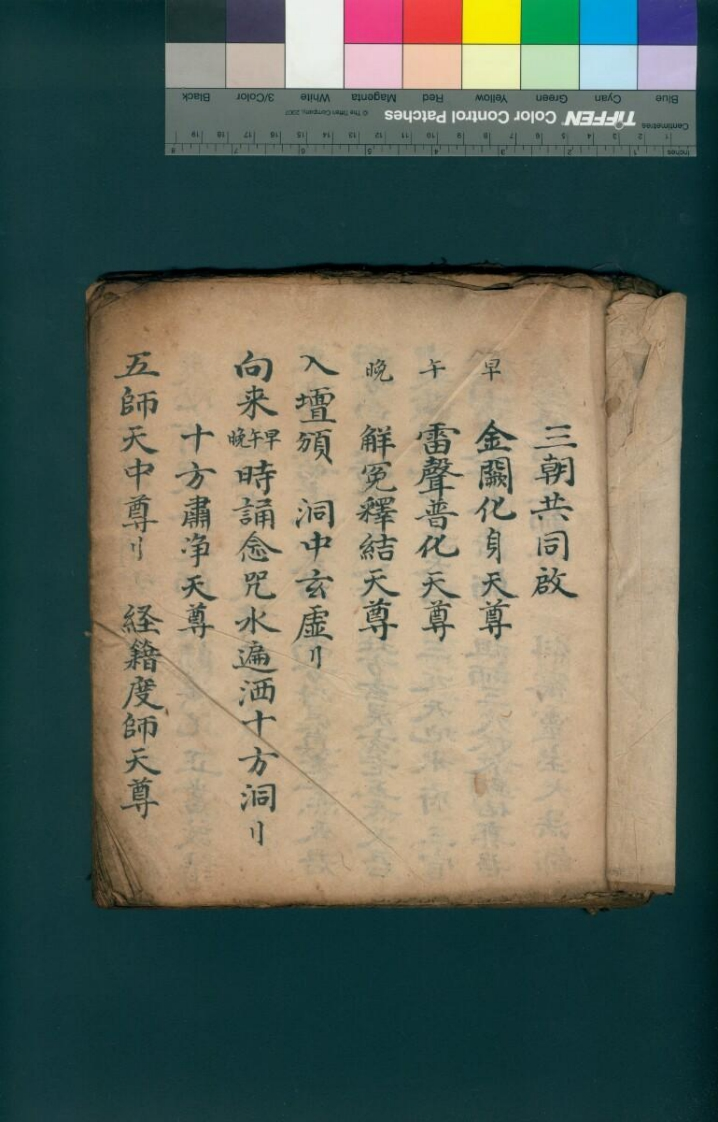 三朝共同啟
早 金闕化身天尊
午 雷聲普化天尊
晚 觧冤釋結天尊
入壇頒 洞中玄虛〢
向来早午晚時誦念咒水遍洒十方洞〢
十方肅净天尊
五師天中尊〢 経籍度師天尊
Inches 1 2 3 4 5 6 7 8
Centimetres 1 2 3 4 5 6 7 8 9 10 11 12 13 14 15 16 17 18 19
TIFFEN Color Control Patches © The Tiffen Company, 2007
Blue Cyan Green Yellow Red Magenta White 3/Color Black